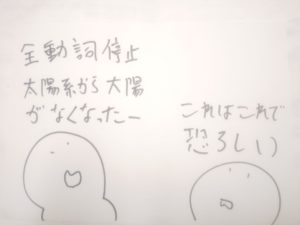 全動詞停止
太陽系から太陽
がなくなったー
これはこれで
恐ろしい